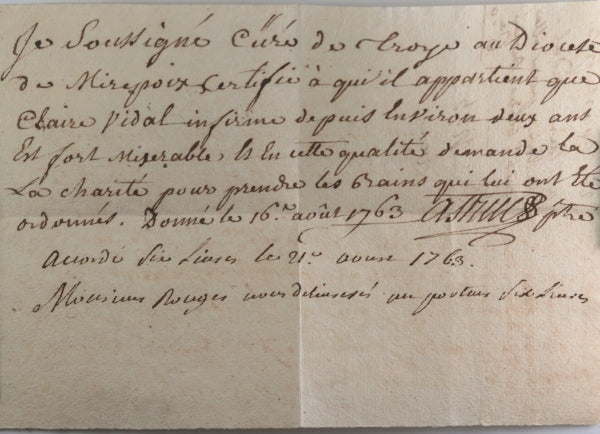 Je Soussigné Curé de troye au Diocese
de Mirepoix Certifie à qu'il appartient que
Claire Vidal infirme depuis Environ deux ans
Est fort Miserable, Et En cette qualité demande la
La charité pour prendre les Bains qui lui ont Eté
ordonnés. Donné le 16.e août 1763 astruc ptre
acordé six Livres le 21e aoust 1763.
Monsieur Rouges vous deliureres au porteur six Liures